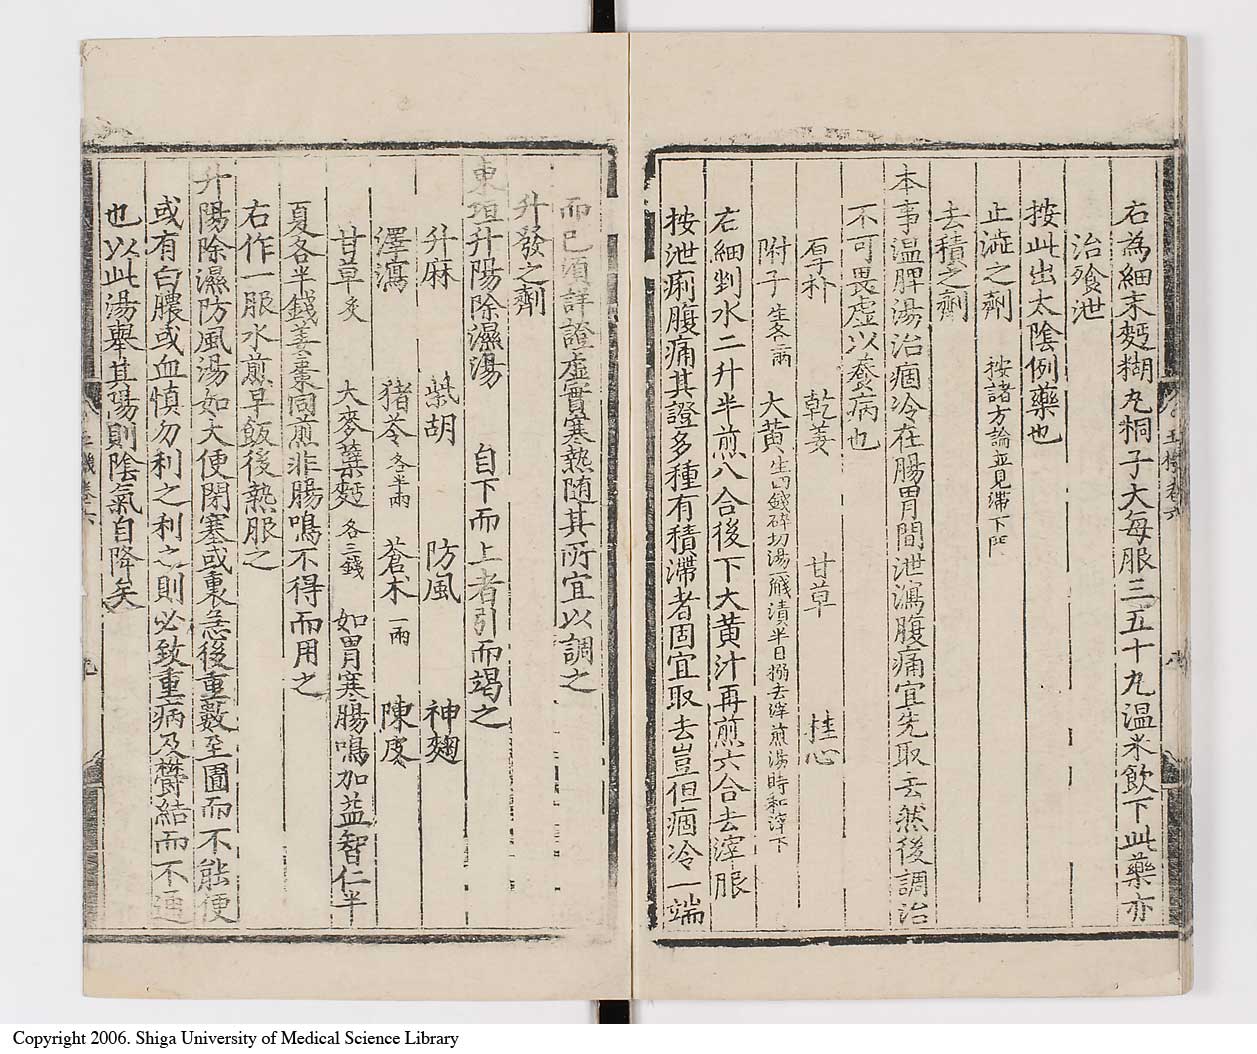 右為細末麪糊丸桐子大每服三五十丸温米飲下此藥亦
治飱泄
按此出太陰例藥也
止澁之劑 按諸方論並見滯下門
去積之劑
本事温脾湯治痼冷在腸胃間泄瀉腹痛宜先取去然後調治
不可畏虚以養病也
厚朴 乾姜 甘草 桂心
附子生各二兩 大黄生四錢碎切湯一盞漬半日搦去滓煎湯時和滓下
右細剉水二升半煎八合後下大黄汁再煎六合去滓服
按泄痢腹痛其證多種有積滯者固宜取去豈但痼冷一端
而已須詳證虚實寒熱随其所宜以調之
升發之劑
東垣升陽除濕湯 自下而上者引而竭之
升麻 柴胡 防風 神麹
澤瀉 猪苓各半兩 蒼术一兩 陳皮
甘草炙 大麥蘖麪各三錢 如胃寒腸鳴加益智仁半
夏各半錢姜棗同煎非腸鳴不得而用之
右作一服水煎早飯後熱服之
升陽除濕防風湯如大便閉塞或裏急後重數至圊而不能便
或有白膿或血慎勿利之利之則必致重病及欝結而不通
也以此湯舉其陽則陰氣自降矣
Copyright 2006. Shiga University of Medical Science Library